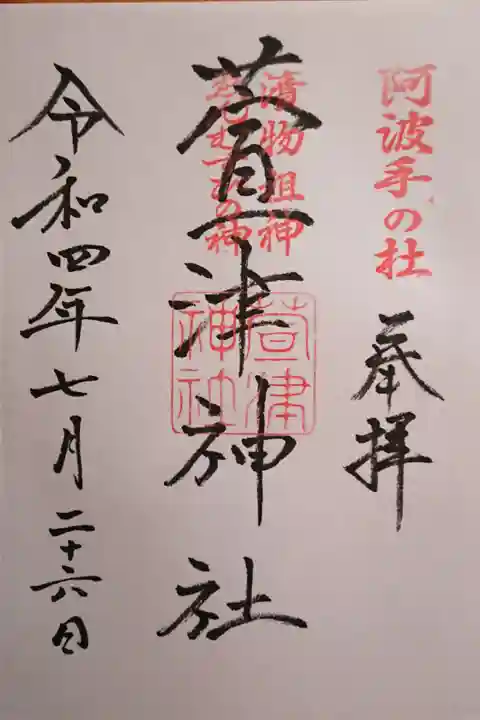 阿波手の杜
奉拝
漬物祖神
えんむすびの神
萱津神社
萱津
神社
令和四年七月二十六日